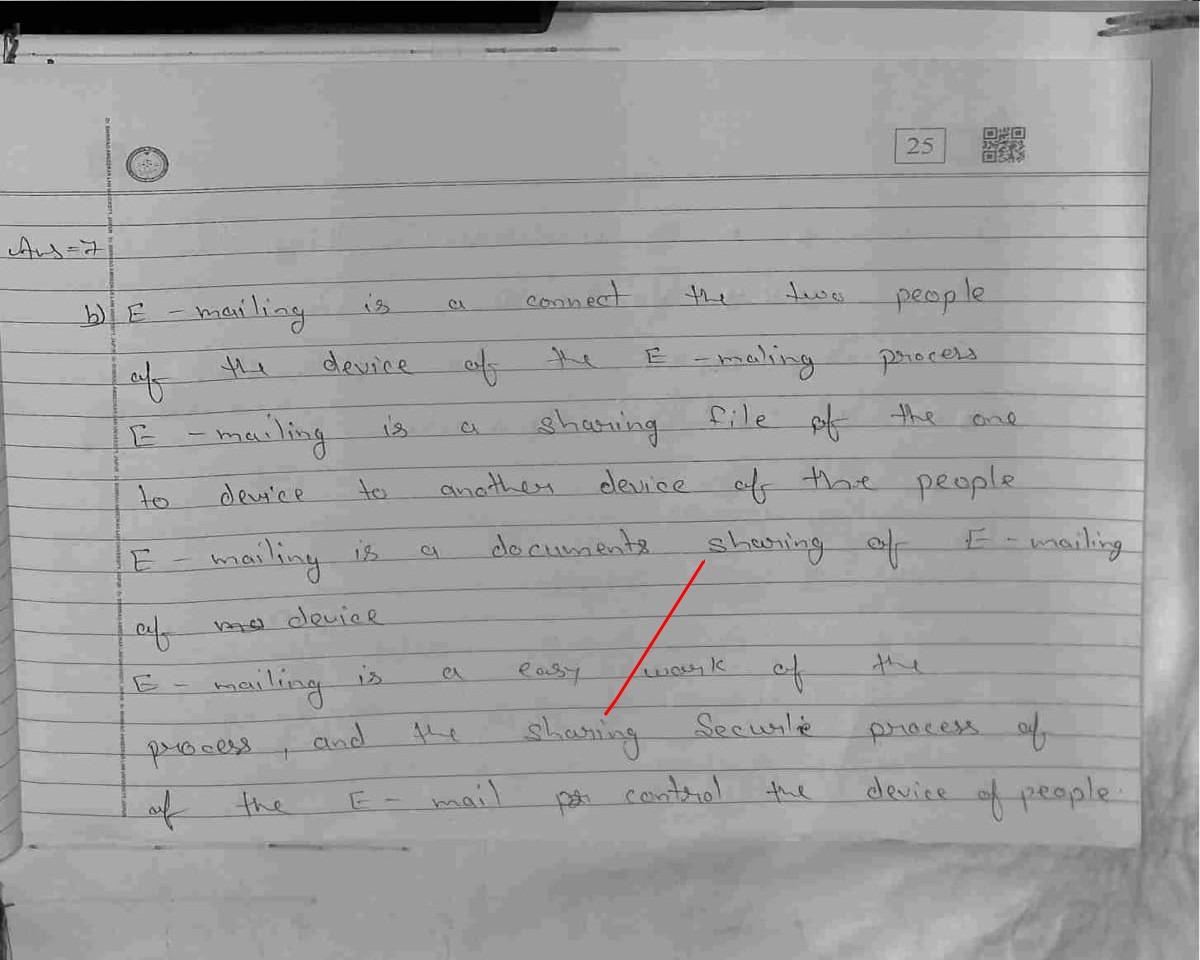 25
Ans=7
b) E-mailing is a connect the two people
of the device of the E-maling process
E-mailing is a sharing file of the one
to device to another device of the people
E-mailing is a documents sharing of E-mailing
of device
E-mailing is a easy work of the
process, and the sharing process of
of the E-mail control the device of people.